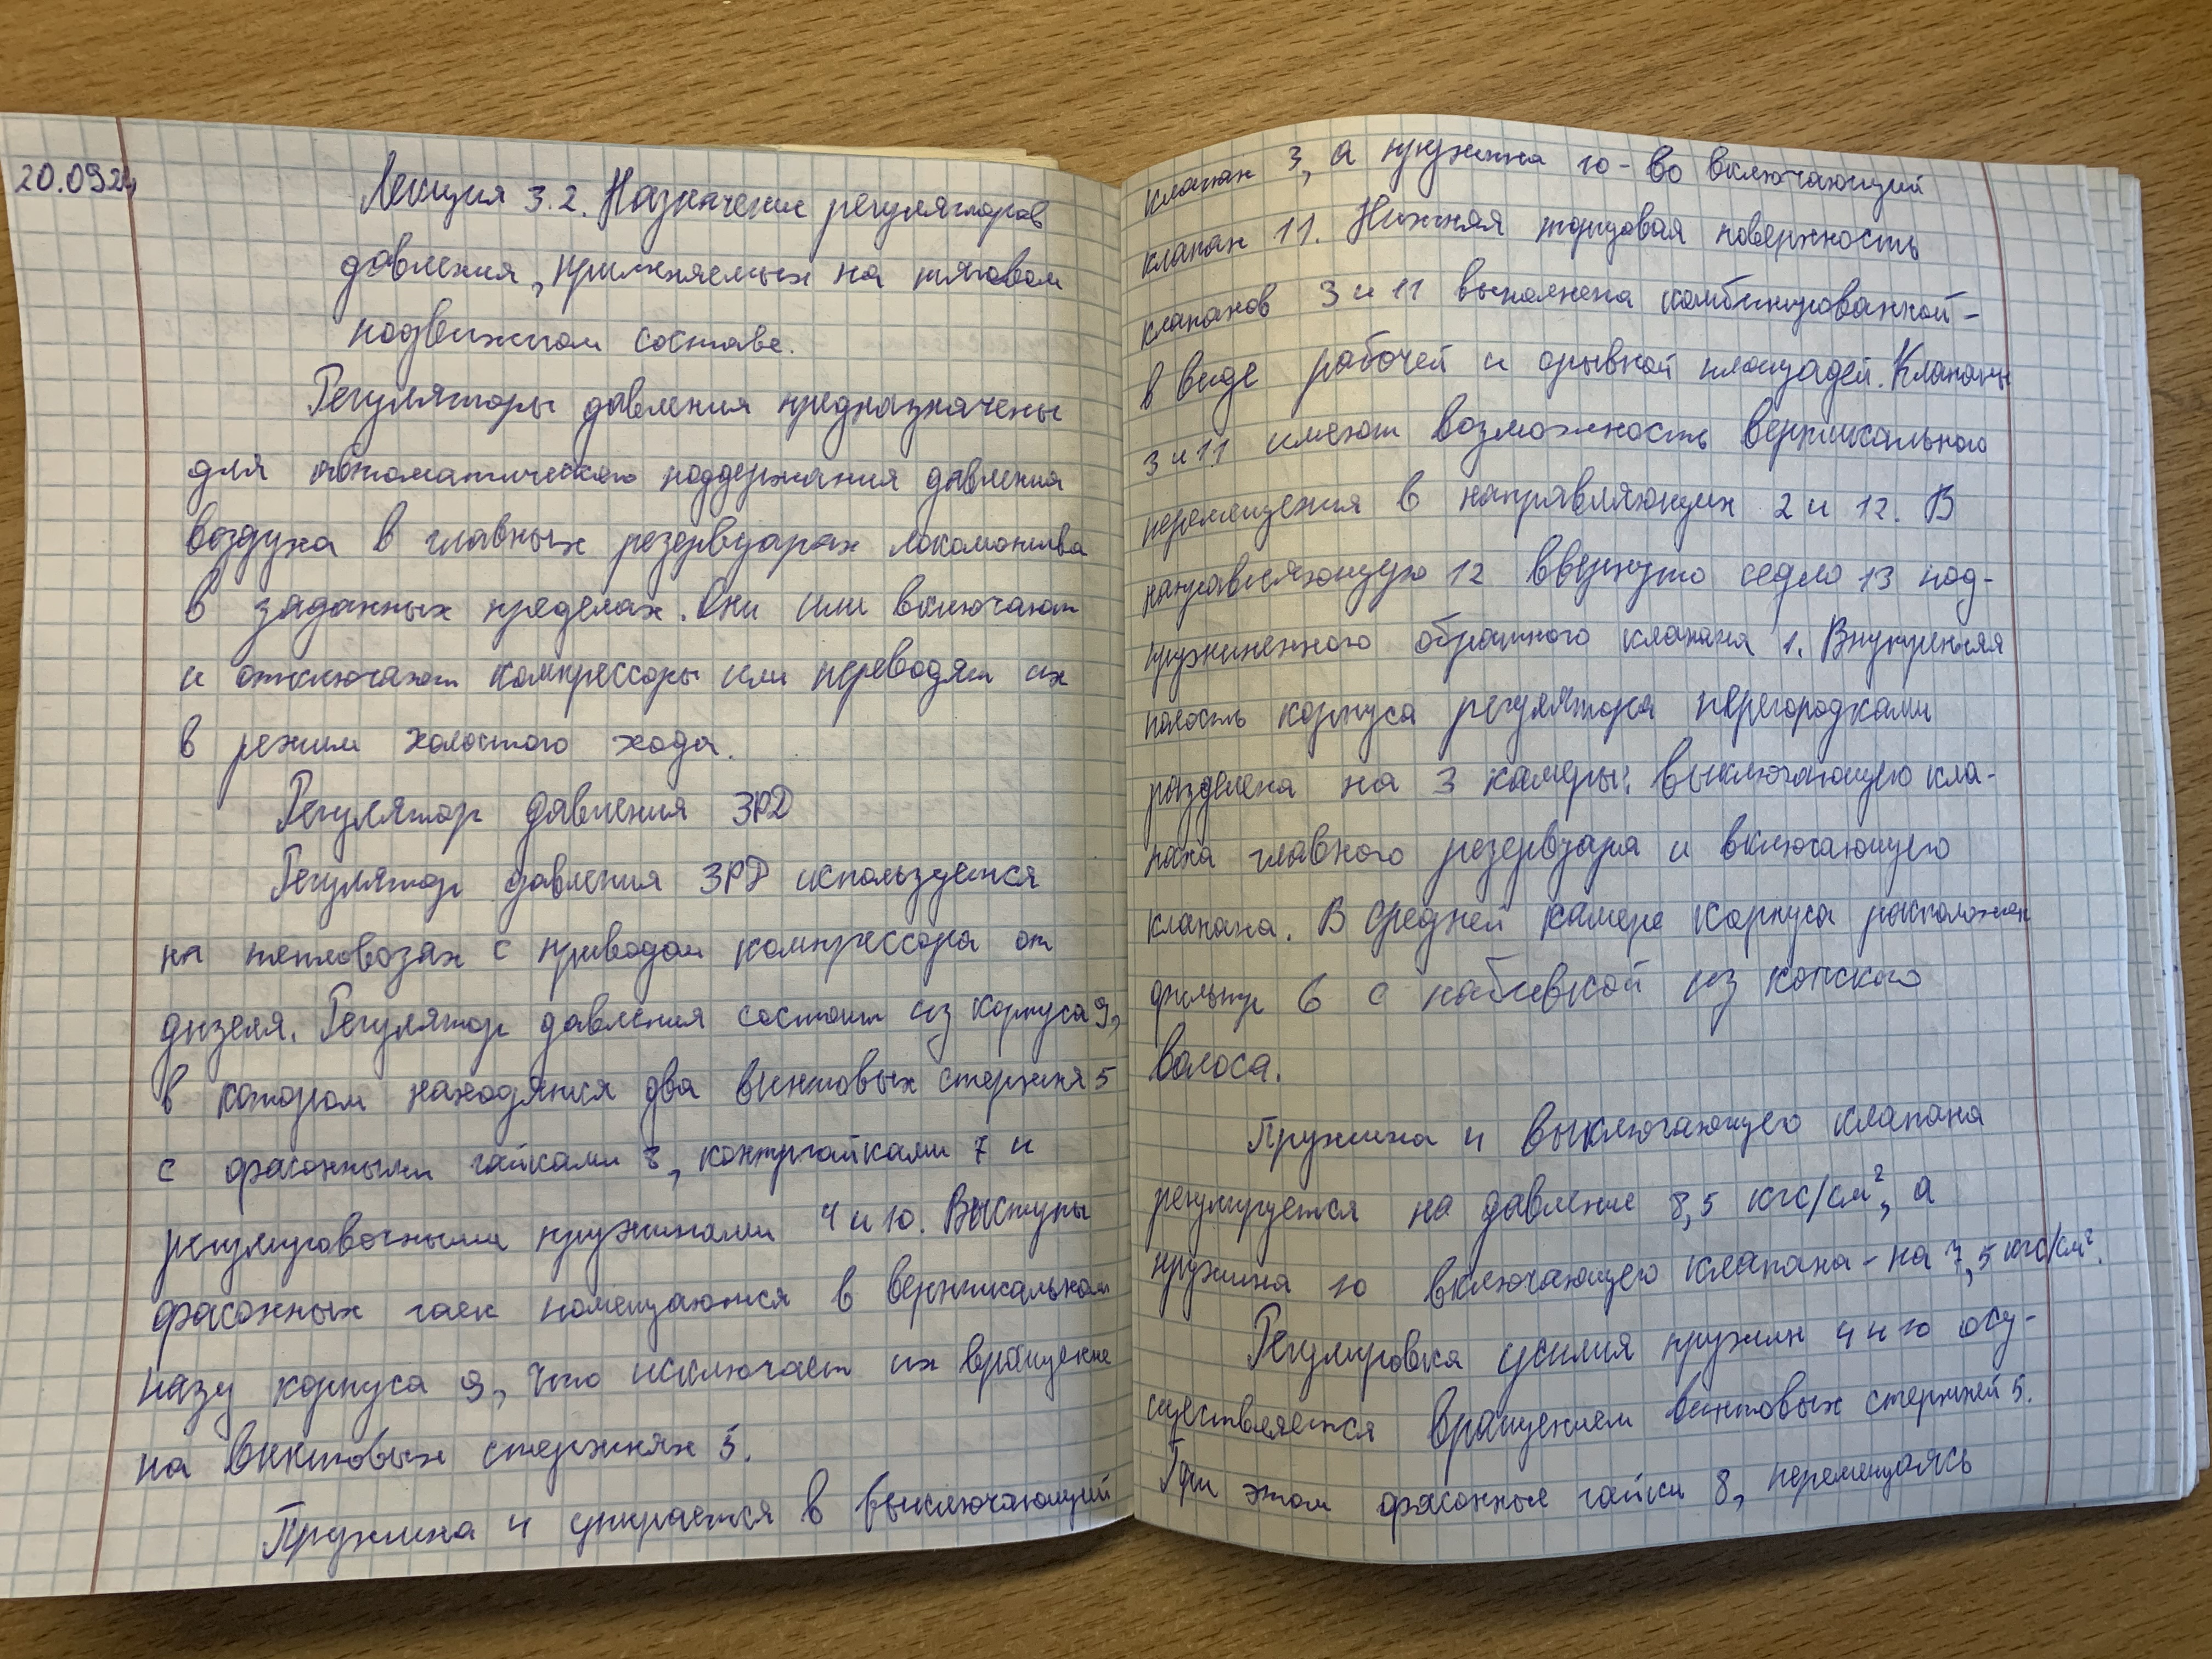 20.09.24
Лекция 3.2. Назначение регуляторов
давления, применяемых на тяговом
подвижном составе.
Регуляторы давления предназначены
для автоматического поддержания давления
воздуха в главных резервуарах локомотива
в заданных пределах. Они или включают
и отключают компрессоры или переводят их
в режим холостого хода.
Регулятор давления 3РД
Регулятор давления 3РД используется
на тепловозах с приводом компрессора от
дизеля. Регулятор давления состоит из корпуса 9,
в котором находятся два винтовых стержня 5
с фасонными гайками 8, контргайками 7 и
регулировочными пружинами 4 и 10. Выступы
фасонных гаек помещаются в вертикальном
пазу корпуса 9, что исключает их вращение
на винтовых стержнях 5.
Пружина 4 упирается в выключающий
клапан 3, а пружина 10 - во включающий
клапан 11. Нижняя торцовая поверхность
клапанов 3 и 11 выполнена комбинированной -
в виде рабочей и срывной площадей. Клапаны
3 и 11 имеют возможность вертикального
перемещения в направляющих 2 и 12. В
направляющую 12 ввернуто седло 13 под-
пружиненного обратного клапана 1. Внутренняя
полость корпуса регулятора перегородками
разделена на 3 камеры: выключающего кла-
пана главного резервуара и включающего
клапана. В средней камере корпуса расположен
фильтр 6 с набивкой из конского
волоса.
Пружина 4 выключающего клапана
регулируется на давление 8,5 кгс/см², а
пружина 10 включающего клапана - на 7,5 кгс/см².
Регулировка усилия пружин 4 и 10 осу-
ществляется вращением винтовых стержней 5.
При этом фасонные гайки 8, перемещаясь